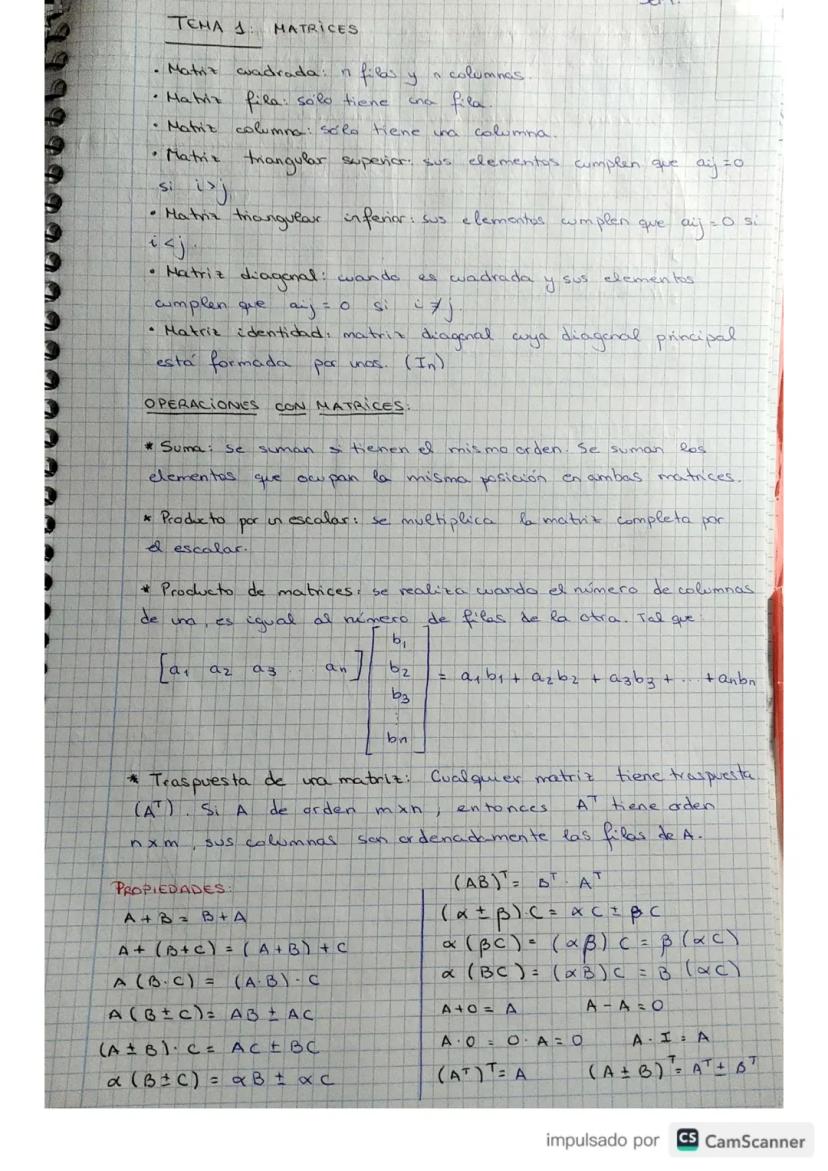 TEMA 1: MATRICES
· Matriz cuadrada: n filas y n columnas.
· Matriz fila: sólo tiene una fila.
· Matriz columna: sólo tiene una columna.
· Matriz triangular superior: sus elementos cumplen que aij = 0
si i>j
· Matriz triangular inferior: sus elementos cumplen que aij = 0 si
i<j.
· Matriz diagonal: cuando es cuadrada y sus elementos
cumplen que aij = 0 si i≠j.
· Matriz identidad: matriz diagonal cuya diagonal principal
está formada por unos. (In)
OPERACIONES CON MATRICES:
* Suma: se suman si tienen el mismo orden. Se suman los
elementos que ocupan la misma posición en ambas matrices.
* Producto por un escalar: se multiplica la matriz completa por
el escalar.
* Producto de matrices: se realiza cuando el número de columnas
de una, es igual al número de filas de la otra. Tal que:
[a1 a2 a3 ... an] [b1 b2 b3 ... bn] = a1b1 + a2b2 + a3b3 + ... + anbn
* Traspuesta de una matriz: Cualquier matriz tiene traspuesta
(Aᵀ). Si A de orden mxn, entonces Aᵀ tiene orden
nxm, sus columnas son ordenadamente las filas de A.
PROPIEDADES:
A + B = B + A
A + (B+C) = (A+B) + C
A (B·C) = (A·B)·C
A (B±C) = AB ± AC
(A±B)·C = AC ± BC
α (B±C) = αB ± αC
(AB)ᵀ = Bᵀ · Aᵀ
(α ± β)·C = αC ± βC
α (βC) = (αβ) C = β (αC)
α (BC) = (αB)C = B (αC)
A+0 = A A - A = 0
A·0 = 0·A = 0 A·I = A
(Aᵀ)ᵀ = A (A ± B)ᵀ = Aᵀ ± Bᵀ
impulsado por CS CamScanner